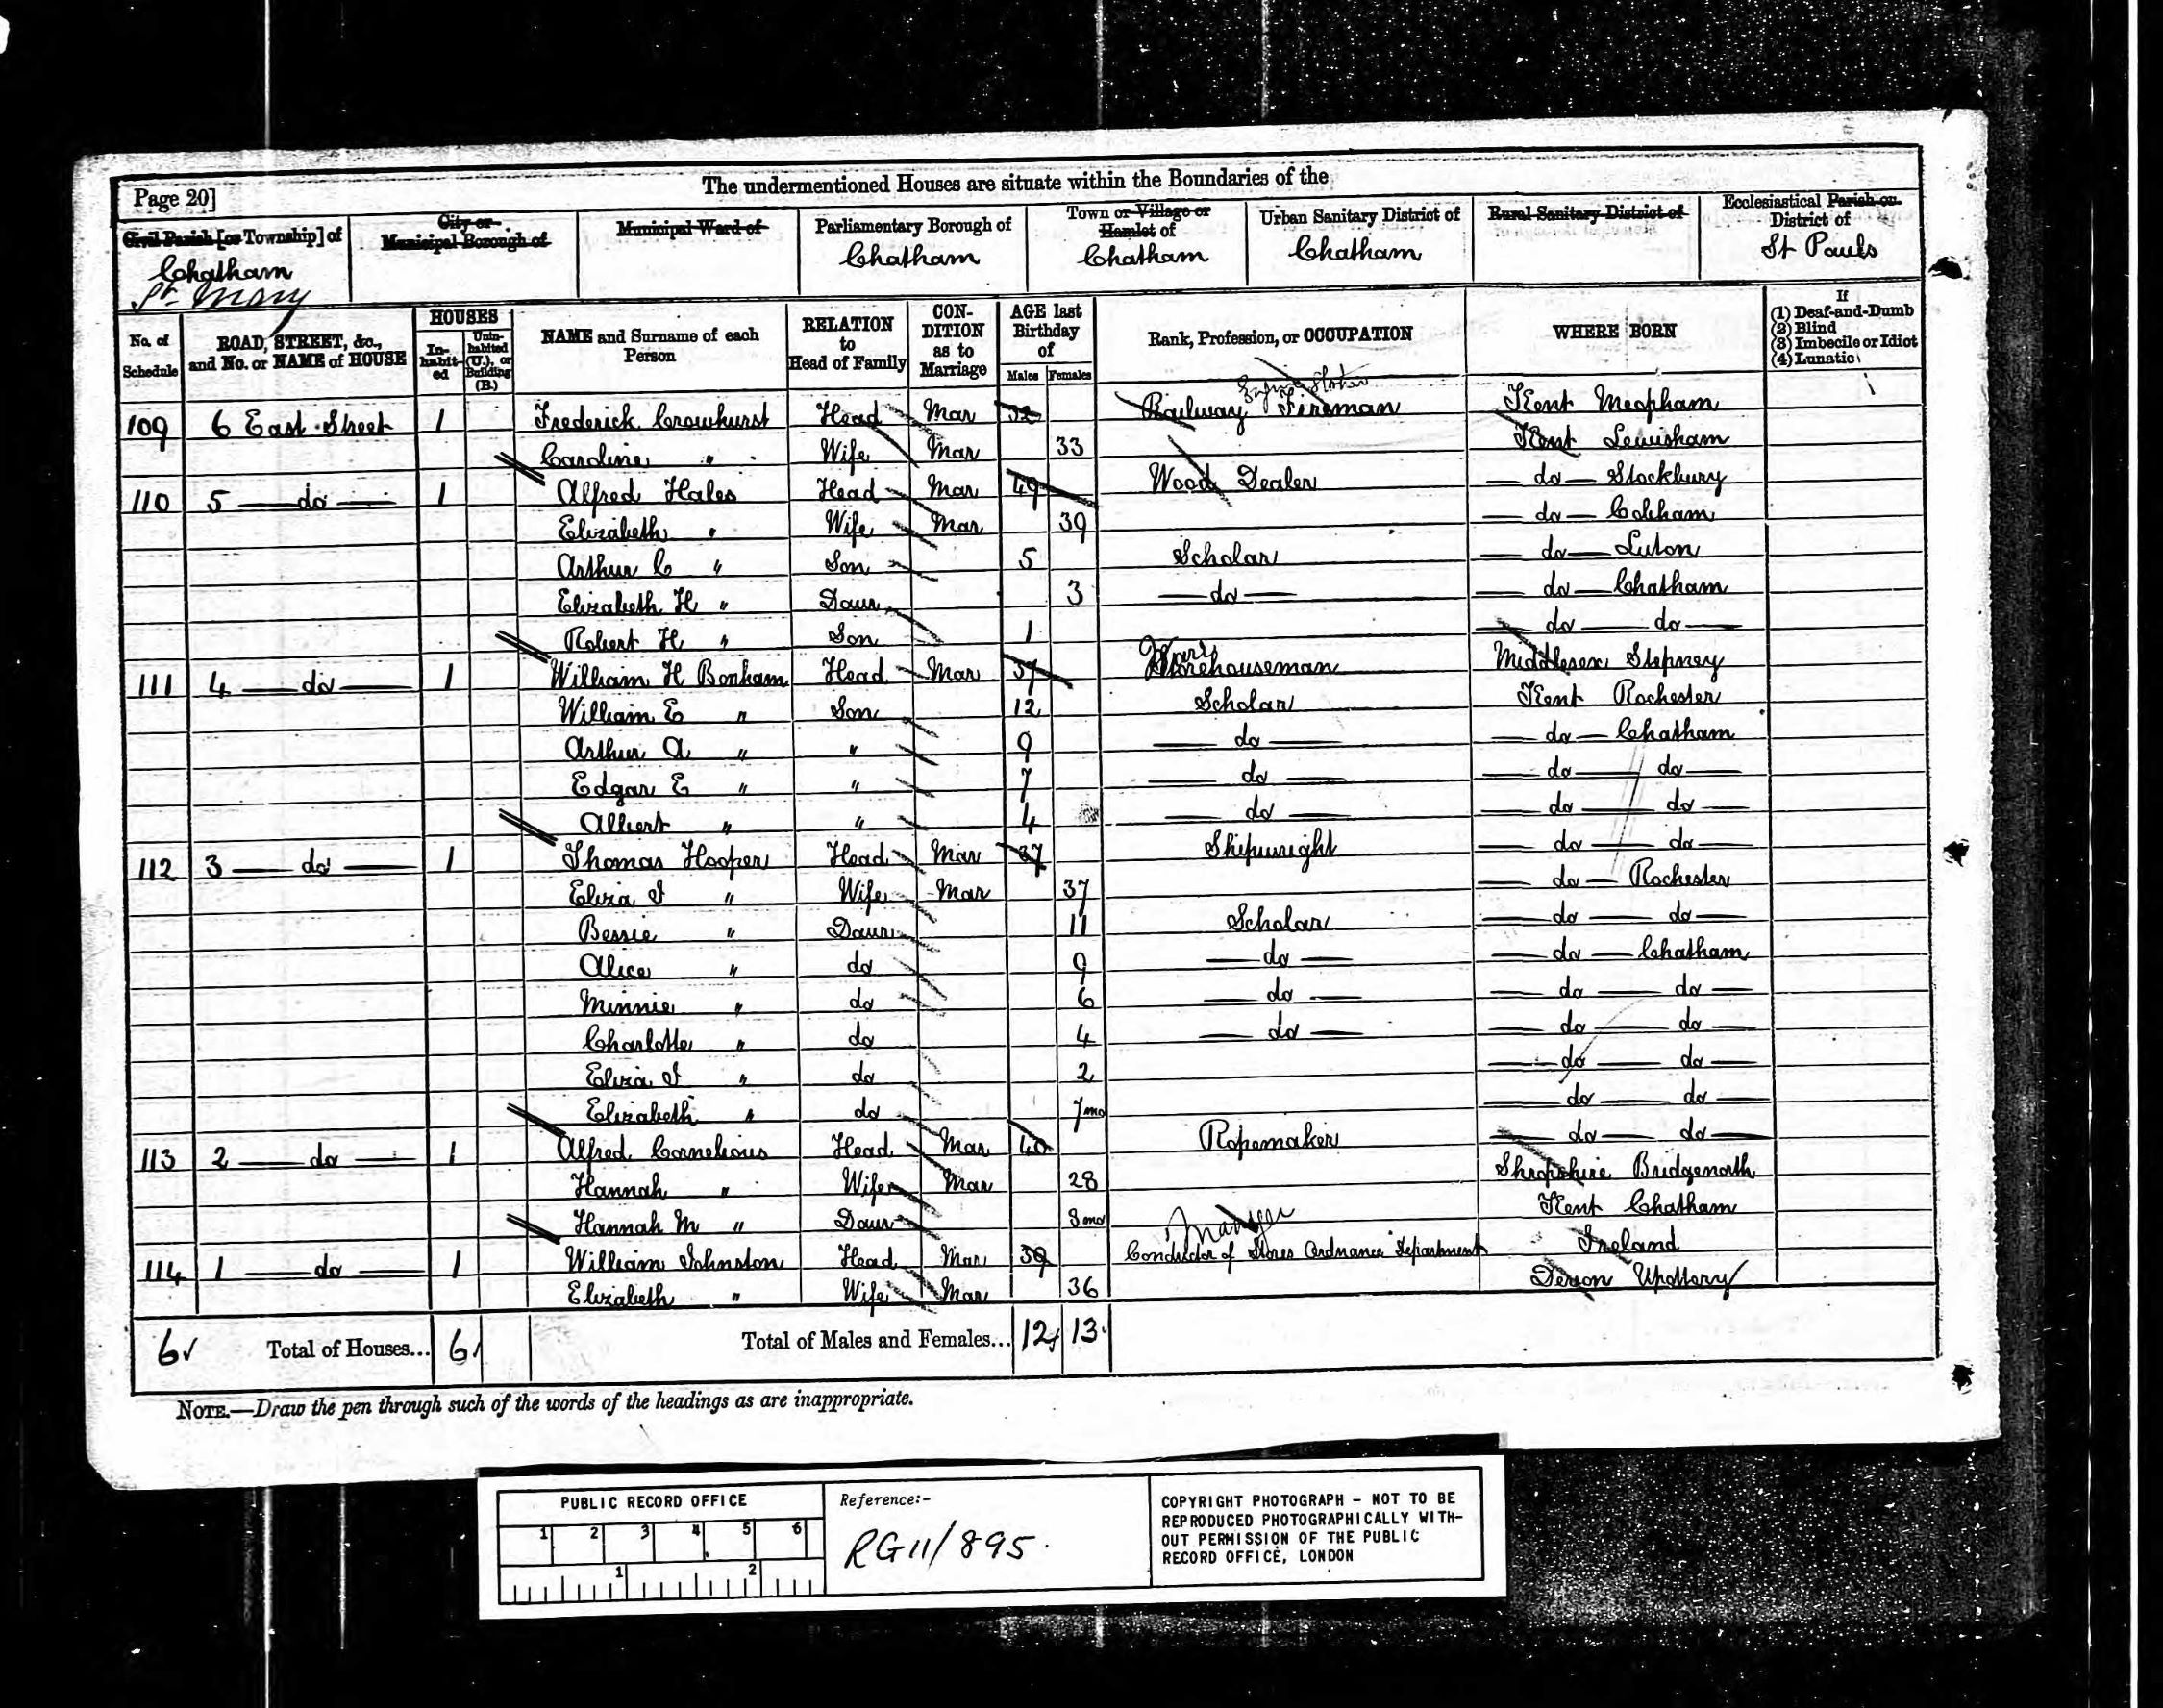 Page 20]
The undermentioned Houses are situate within the Boundaries of the
Civil Parish [or Township] of
City or Municipal Borough of
Municipal Ward of
Parliamentary Borough of
Town or Village or Hamlet of
Urban Sanitary District of
Rural Sanitary District of
Ecclesiastical Parish or District of
Chatham
St. Mary
Chatham
Chatham
Chatham
St Pauls
No. of Schedule
ROAD, STREET, &c., and No. or NAME of HOUSE
HOUSES
In-habit-ed
Unin-habited (U.), or Building (B.)
NAME and Surname of each Person
RELATION to Head of Family
CON-DITION as to Marriage
AGE last Birthday of
Males Females
Rank, Profession, or OCCUPATION
WHERE BORN
If
(1) Deaf-and-Dumb
(2) Blind
(3) Imbecile or Idiot
(4) Lunatic
Engine Stoker
109 6 East Street 1 Frederick Crowhurst Head Mar 32 Railway Fireman Kent Meopham
Caroline " Wife Mar 33 Kent Lewisham
110 5 do 1 Alfred Hales Head Mar 49 Wood Dealer do Stockbury
Elizabeth " Wife Mar 39 do Cobham
Arthur C " Son 5 Scholar do Luton
Elizabeth H " Daur 3 do do Chatham
Robert H " Son 1 do do
111 4 do 1 William H Bonham Head Mar 37 Storehouseman Middlesex Stepney
William E " Son 12 Scholar Kent Rochester
Arthur A " " 9 do do Chatham
Edgar E " " 7 do do do
Albert " " 4 do do do
112 3 do 1 Thomas Hooper Head Mar 37 Shipwright do do
Eliza J " Wife Mar 37 do Rochester
Bessie " Daur 11 Scholar do do
Alice " do 9 do do Chatham
Minnie " do 6 do do do
Charlotte " do 4 do do do
Eliza J " do 2 do do
Elizabeth " do 7mo do do
113 2 do 1 Alfred Cornelious Head Mar 40 Ropemaker do do
Hannah " Wife Mar 28 Shropshire Bridgenorth
Hannah M " Daur 8mo Kent Chatham
114 1 do 1 William Johnston Head Mar 39 Conductor of Stores Ordnance Department Ireland
Elizabeth " Wife Mar 36 Devon Upottery
6 Total of Houses... 6 Total of Males and Females... 12 13
NOTE.—Draw the pen through such of the words of the headings as are inappropriate.
PUBLIC RECORD OFFICE
1 2 3 4 5 6
1 2
Reference:-
RG11/895.
COPYRIGHT PHOTOGRAPH - NOT TO BE
REPRODUCED PHOTOGRAPHICALLY WITH-
OUT PERMISSION OF THE PUBLIC
RECORD OFFICE, LONDON